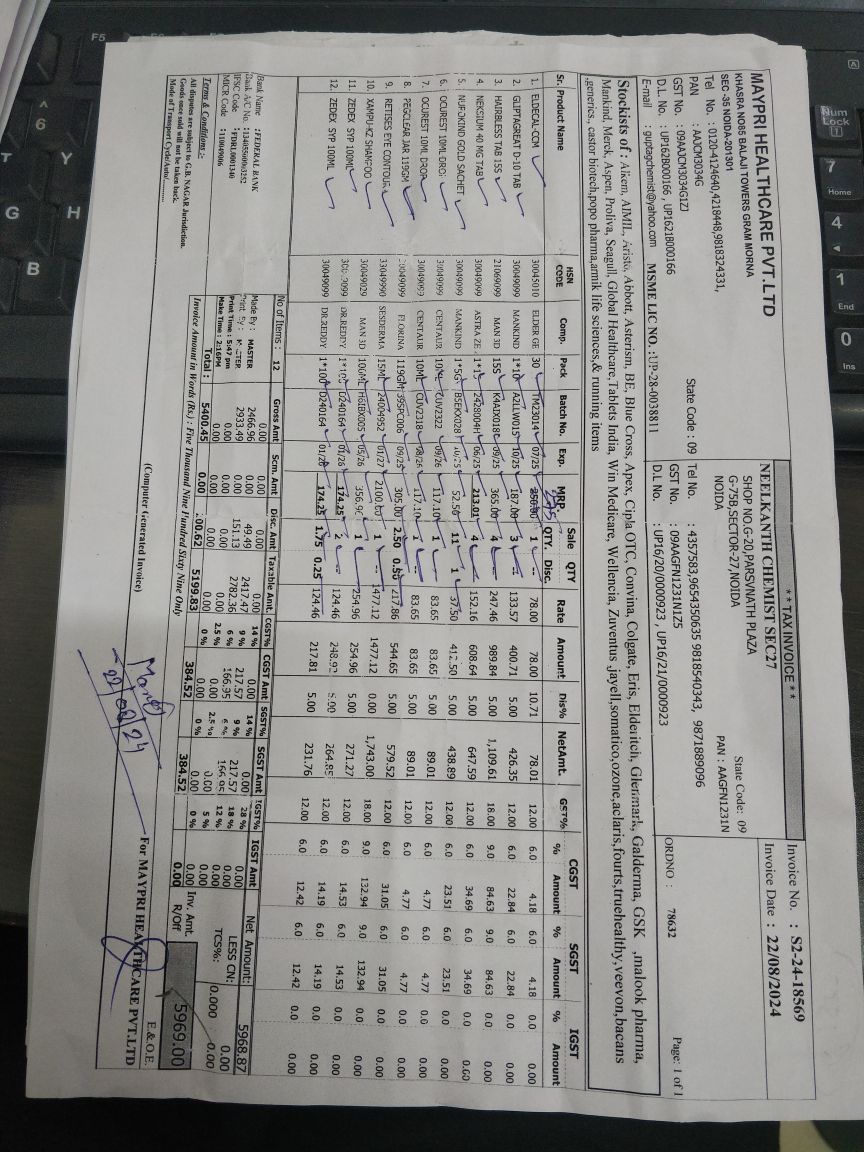 MAYPRI HEALTHCARE PVT.LTD
KHASRA NO85 BALAJI TOWERS GRAM MORNA
SEC -35 NOIDA-201301
Tel No. : 0120-4124640,4218448,9818324331,
PAN : AAJCM3034G State Code : 09
GST No. : 09AAJCM3034G1ZJ
D.L No. : UP162B000166 , UP1621B000166
E-mail : guptagchemist@yahoo.com MSME LIC NO. :UP-28-0038811
** TAX INVOICE **
NEELKANTH CHEMIST SEC27
SHOP NO.G-20,PARSVNATH PLAZA
G-75B,SECTOR-27,NOIDA
NOIDA
State Code: 09
PAN : AAGFN1231N
Tel No. : 4357583,9654350635 9818540343, 9871889096
GST No. : 09AAGFN1231N1Z5
D.L No. : UP16/20/0000923 , UP16/21/0000923
Invoice No. : S2-24-18569
Invoice Date : 22/08/2024
ORDNO : 78632
Page: 1 of 1
Stockists of : Alkem, AIMIL, Aristo, Abbott, Asterism, BE, Blue Cross, Apex, Cipla OTC, Convina, Colgate, Eris, Elderitch, Glenmark, Galderma, GSK ,malook pharma,
Mankind, Merck, Aspen, Proliva, Seagull, Global Healthcare,Tablets India, Win Medicare, Wellencia, Zuventus ,jayell,somatico,ozone,aclaris,fourts,truehealthy,veevon,bacans
,generics, castor biotech,popo pharma,amik life sciences,& running items
Sr. Product Name HSN CODE Comp. Pack Batch No. Exp. MRP. Sale QTY. QTY Disc. Rate Amount Dis% NetAmt. GST% CGST % Amount SGST % Amount IGST % Amount
1. ELDECAL-CCM 30045010 ELDER GE 30 TM23014 07/25 1 -- 78.00 78.00 10.71 78.01 12.00 6.0 4.18 6.0 4.18 0.0 0.00
2. GLIPTAGREAT D-10 TAB 30049099 MANKIND 1*10 A2ILLW015 10/25 187.00 3 -- 133.57 400.71 5.00 426.35 12.00 6.0 22.84 6.0 22.84 0.0 0.00
3. HAIRBLESS TAB 15S 21069099 MAN 3D 15S K4AIX018 09/25 365.00 4 -- 247.46 989.84 5.00 1,109.61 18.00 9.0 84.63 9.0 84.63 0.0 0.00
4. NEKSIUM 40 MG TAB 30049099 ASTRA ZE 1*15 2428004H 06/25 213.01 4 -- 152.16 608.64 5.00 647.59 12.00 6.0 34.69 6.0 34.69 0.0 0.00
5. NUROKIND GOLD SACHET 30049099 MANKIND 1*5G B5EKX028 52.50 11 1 37.50 412.50 5.00 438.89 12.00 6.0 23.51 6.0 23.51 0.0 0.00
6. OCUREST 10ML DROP 30049099 CENTAUR 10ML CUV2322 09/26 117.10 1 -- 83.65 83.65 5.00 89.01 12.00 6.0 4.77 6.0 4.77 0.0 0.00
7. OCUREST 10ML DROP 30049099 CENTAUR 10ML CUV2318 08/26 117.10 1 -- 83.65 83.65 5.00 89.01 12.00 6.0 4.77 6.0 4.77 0.0 0.00
8. PEGCLEAR JAR 119GM 30049099 FLORINA 119GM 39SPC006 09/25 305.00 2.50 0.50 217.86 544.65 5.00 579.52 12.00 6.0 31.05 6.0 31.05 0.0 0.00
9. RETISES EYE CONTOUR 33049990 SESDERMA 15ML 24004952 01/27 2100.00 1 -- 1477.12 1477.12 0.00 1,743.00 18.00 9.0 132.94 9.0 132.94 0.0 0.00
10. XAMPU-KZ SHAMPOO 30049029 MAN 3D 100ML H6IBX005 05/26 356.90 1 -- 254.96 254.96 5.00 271.27 12.00 6.0 14.53 6.0 14.53 0.0 0.00
11. ZEDEX SYP 100ML 30049099 DR.REDDY 1*100 D240164 01/26 174.25 2 -- 124.46 248.92 5.00 264.85 12.00 6.0 14.19 6.0 14.19 0.0 0.00
12. ZEDEX SYP 100ML 30049099 DR.REDDY 1*100 D240164 01/26 174.25 1.75 0.25 124.46 217.81 5.00 231.76 12.00 6.0 12.42 6.0 12.42 0.0 0.00
No of Items : 12 Gross Amt Scm. Amt Disc. Amt Taxable Amt. CGST% CGST Amt SGST% SGST Amt IGST% IGST Amt
0.00 0.00 0.00 0.00 14 % 0.00 14 % 0.00 28 % 0.00
2466.96 0.00 49.49 2417.47 9 % 217.57 9 % 217.57 18 % 0.00
2933.49 0.00 151.13 2782.36 6 % 166.95 6 % 166.95 12 % 0.00
0.00 0.00 0.00 0.00 2.5 % 0.00 2.5 % 0.00 5 % 0.00
0.00 0.00 0.00 0.00 0 % 0.00 0 % 0.00 0 % 0.00
Total : 5400.45 0.00 200.62 5199.83 384.52 384.52 0.00
Made By : MASTER
Print By : MASTER
Print Time : 5:47 pm
Make Time : 2:16PM
Net Amount: 5968.87
LESS CN: 0.00
TCS%: 0.000 0.00
Inv. Amt. R/Off 5969.00
Bank Name : FEDERAL BANK
Bank A/C No.
IFSC Code : FDRL0001340
MICR Code : 110049006
Terms & Conditions :-
All disputes are subject to G.B. NAGAR Jurisdiction.
Goods once sold will not be taken back.
Mode of Transport Cycle/Auto/
Invoice Amount in Words (Rs.) : Five Thousand Nine Hundred Sixty Nine Only
(Computer Generated Invoice)
22/08/24
For MAYPRI HEALTHCARE PVT.LTD
E.& O.E.
F5
^
6
T
Y
G
H
B
Num
Lock
7
Home
4
1
End
0
Ins